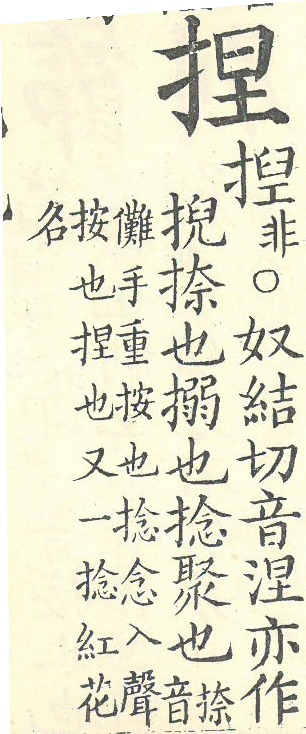 捏
揑非○奴結切音涅亦作
掜捺也搦也捻聚也捺音
儺手重按也捻念入聲
按也捏也又一捻紅花
名